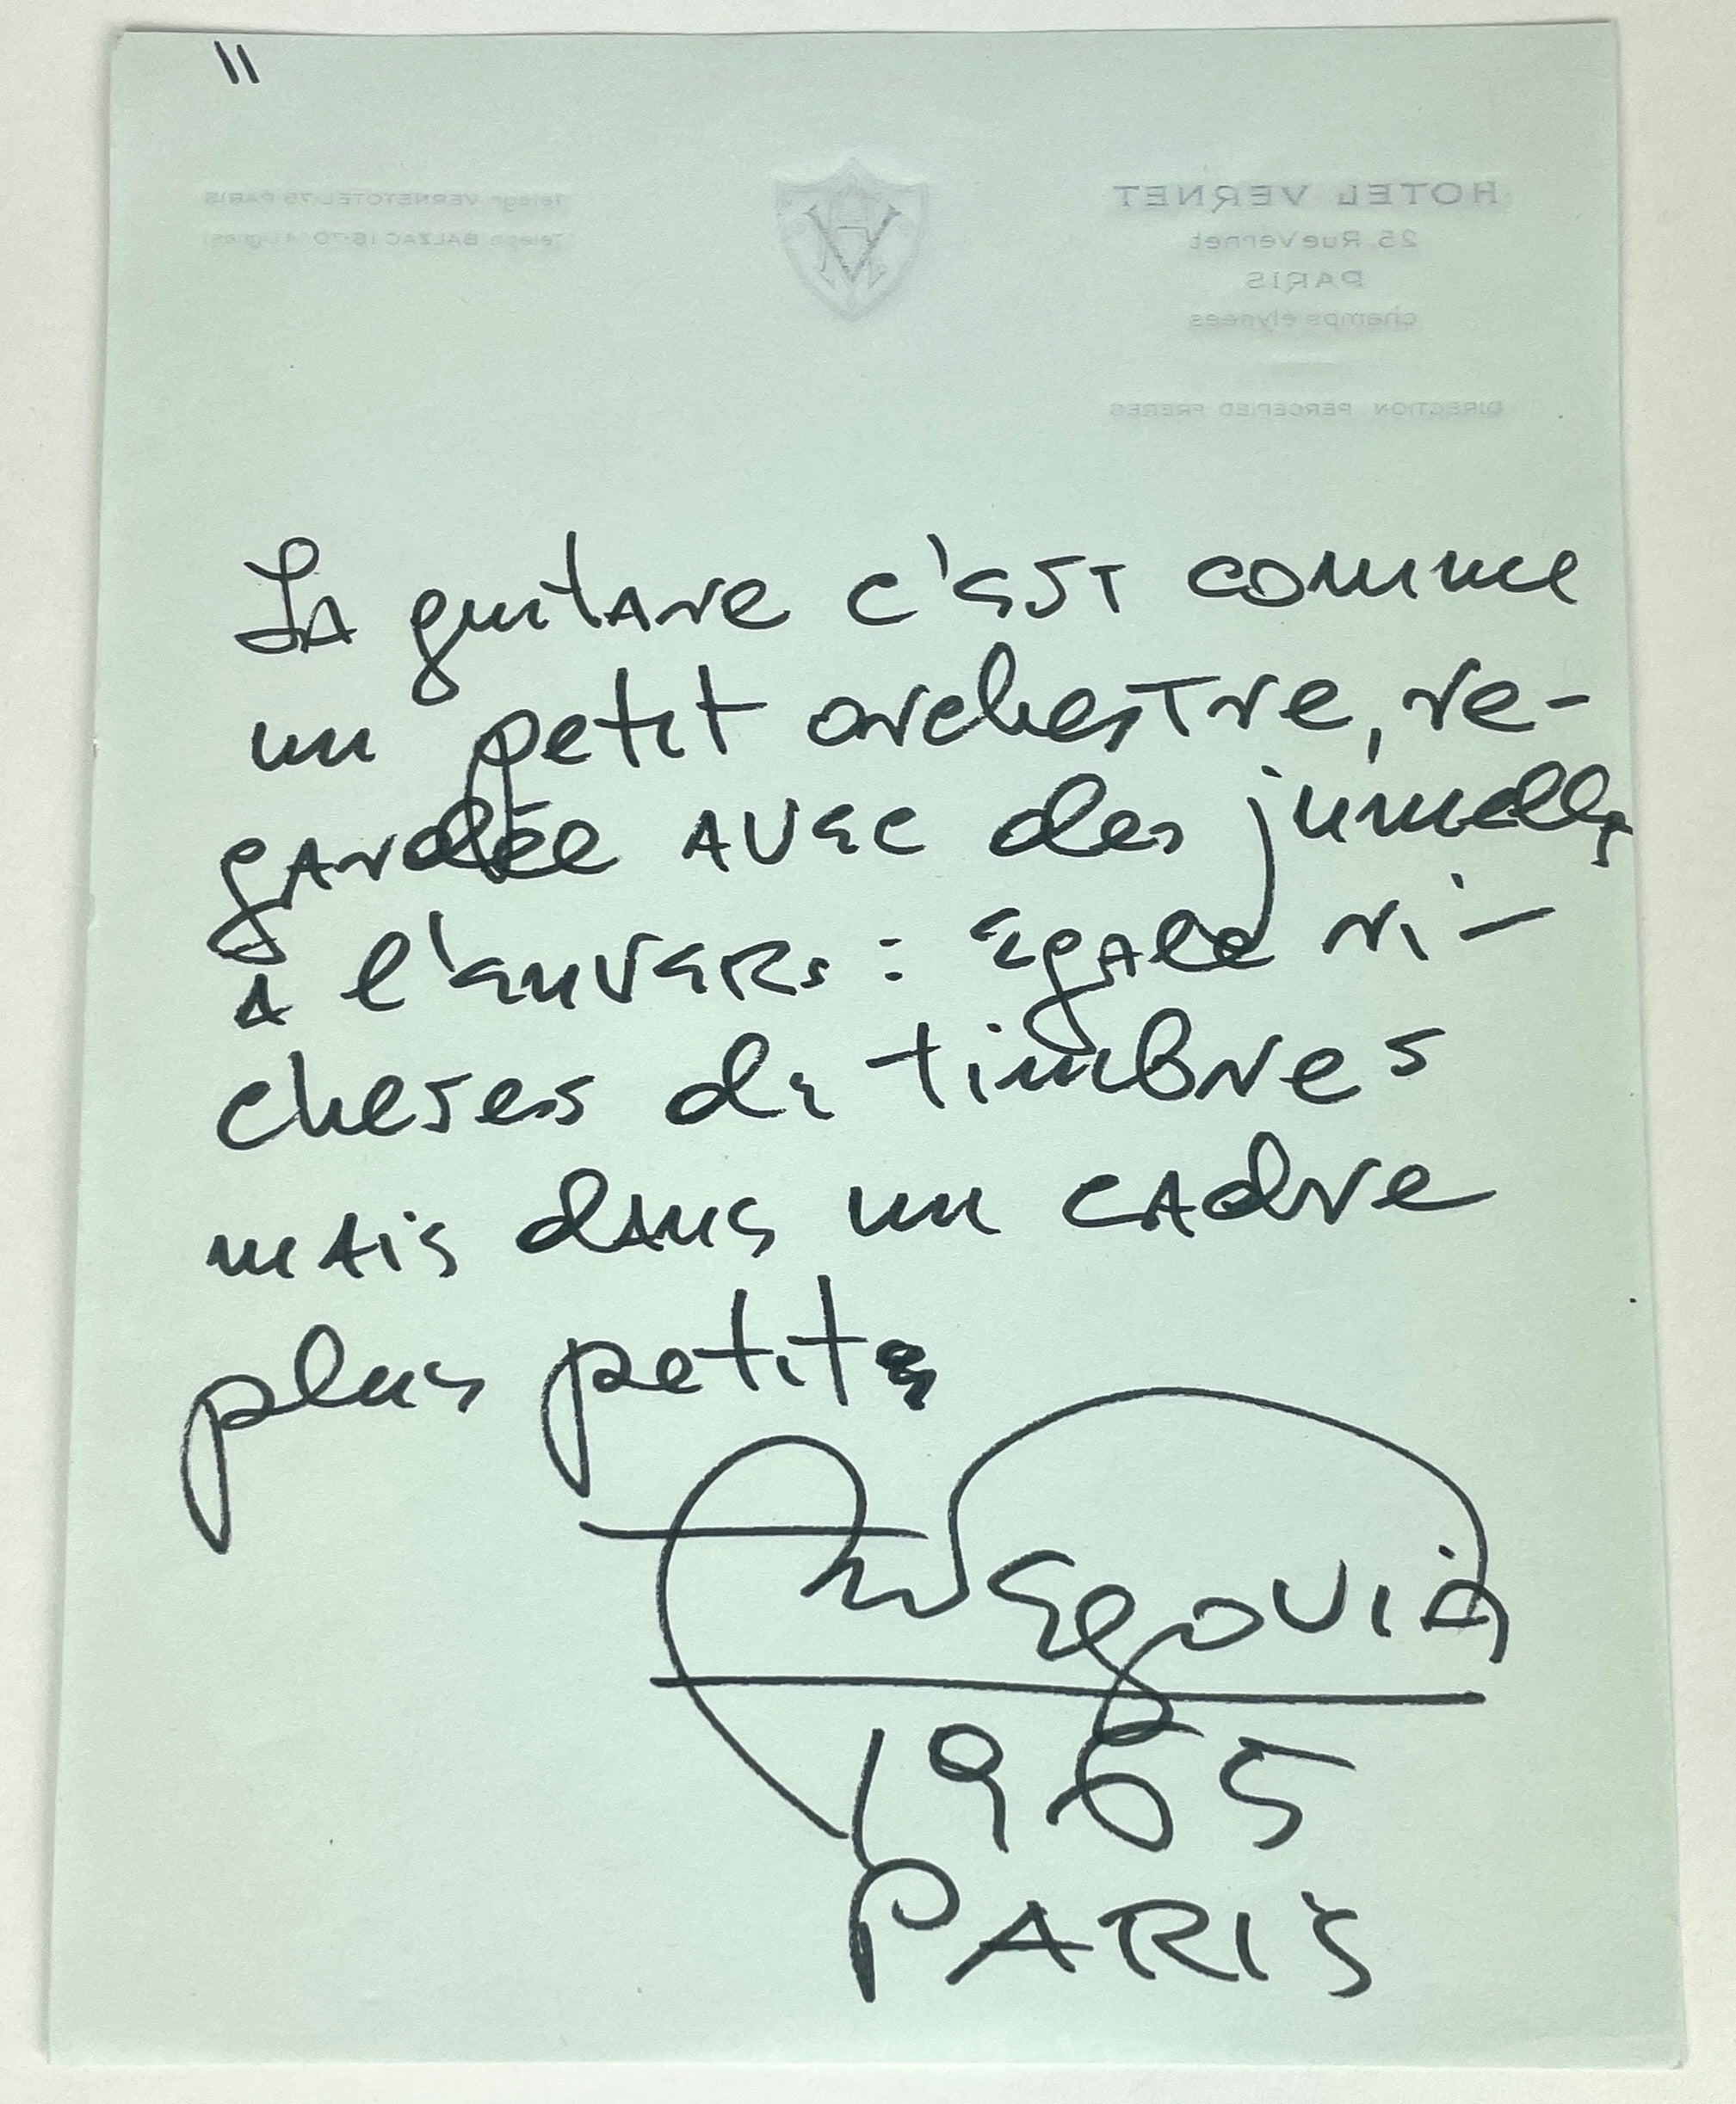 "
HOTEL VERNET
25, Rue Vernet
PARIS
champs élysées
DIRECTION PERCEPIED FRERES
Telegr VERNETOTEL 75 PARIS
Teleph BALZAC 16-70 4 lignes
La guitare c'est comme
un petit orchestre, re-
gardée avec des jumelles
a l'envers : egale ri-
cheses de timbres
mais dans un cadre
plus petit
And Segovia
1965
PARIS